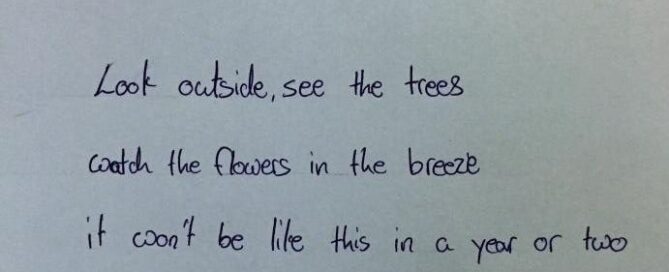 Look outside, see the trees
watch the flowers in the breeze
it won't be like this in a year or two